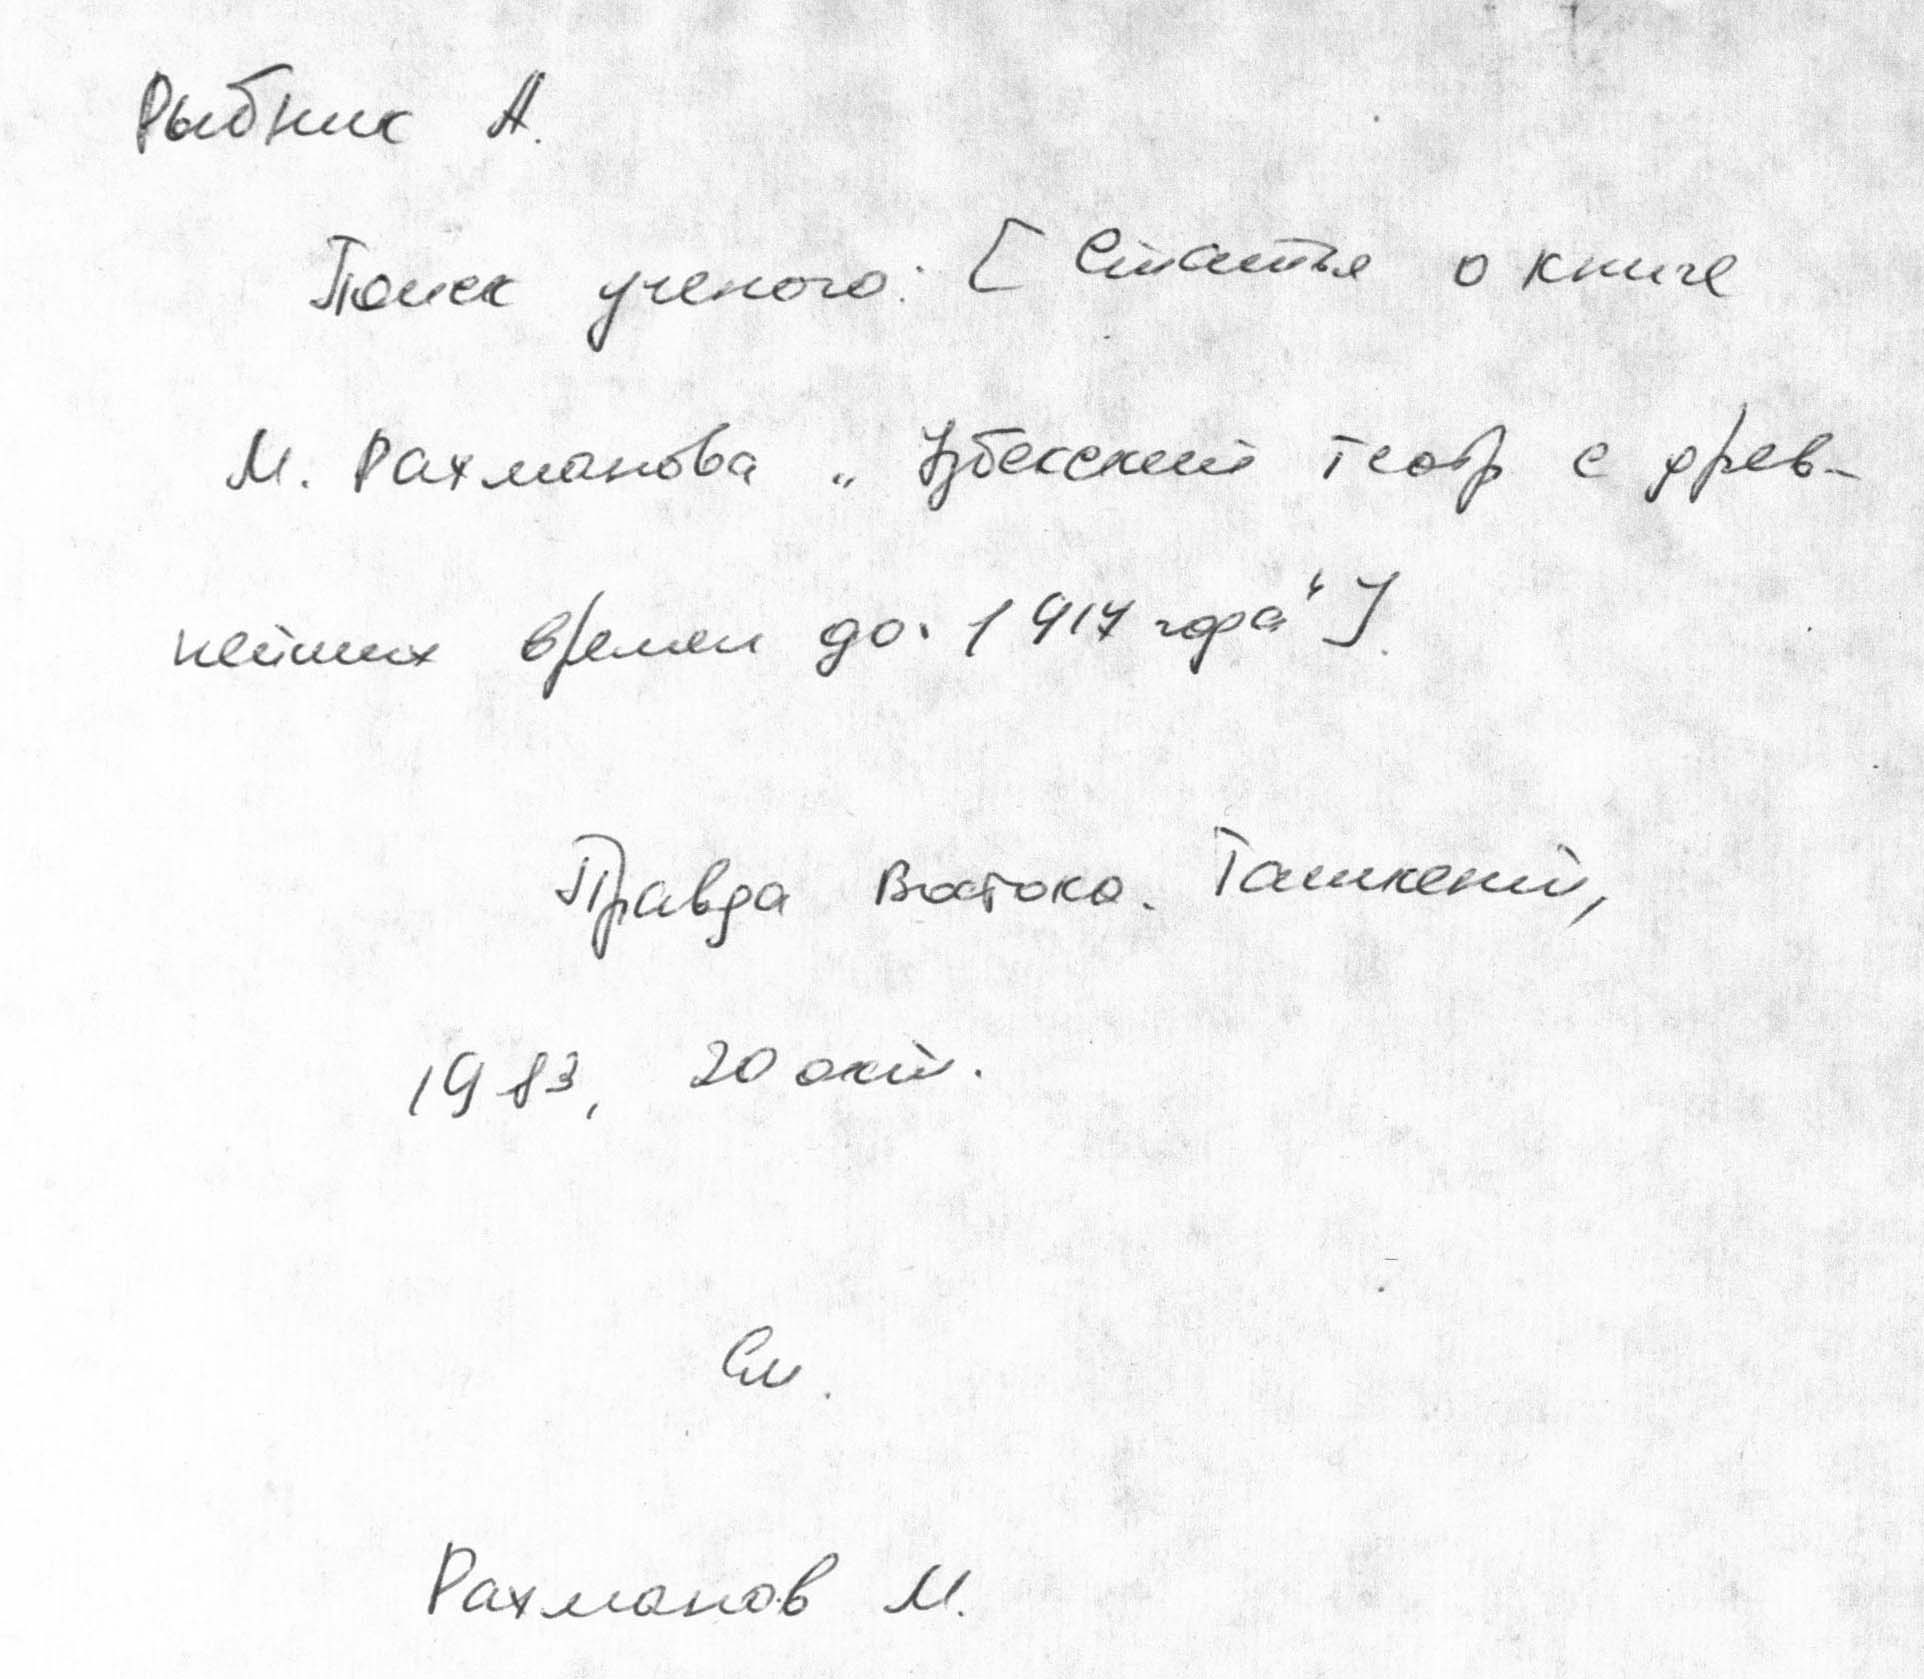 Рыбник А.
Поиск ученого: [Статья о книге
М. Рахманова „Узбекский театр с древ-
нейших времен до 1917 года“].
Правда Востока. Ташкент,
1983, 20 окт.
См.
Рахманов М.